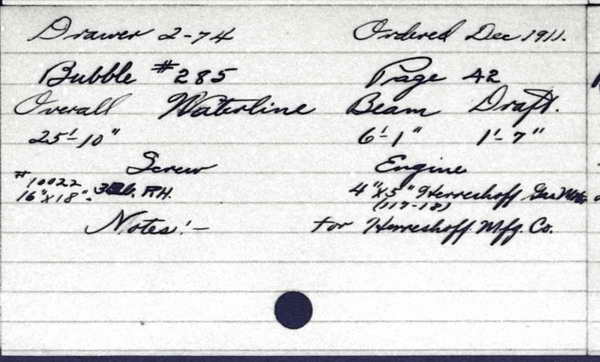 Drawer 2-74 Ordered Dec 1911.
Bubble #285 Page 42
Overall Waterline Beam Draft.
25'-10" 6'-1" 1'-7"
Screw Engine
#10022 4"x5" Herreshoff Gas Motor
16"x18". R.H. (117-18)
Notes:- for Herreshoff Mfg. Co.